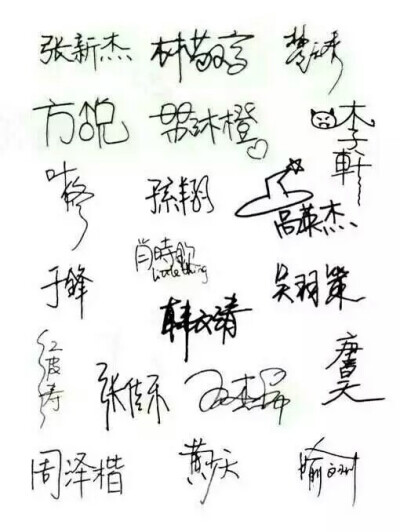 张新杰
林敬言
楚云秀
方锐
苏沐橙
李軒
叶修
孫翔
高英杰
肖時欽
Little thing
于鋒
韩文清
吴羽策
江波涛
张佳乐
王杰希
唐昊
周泽楷
黄少天
喻文州